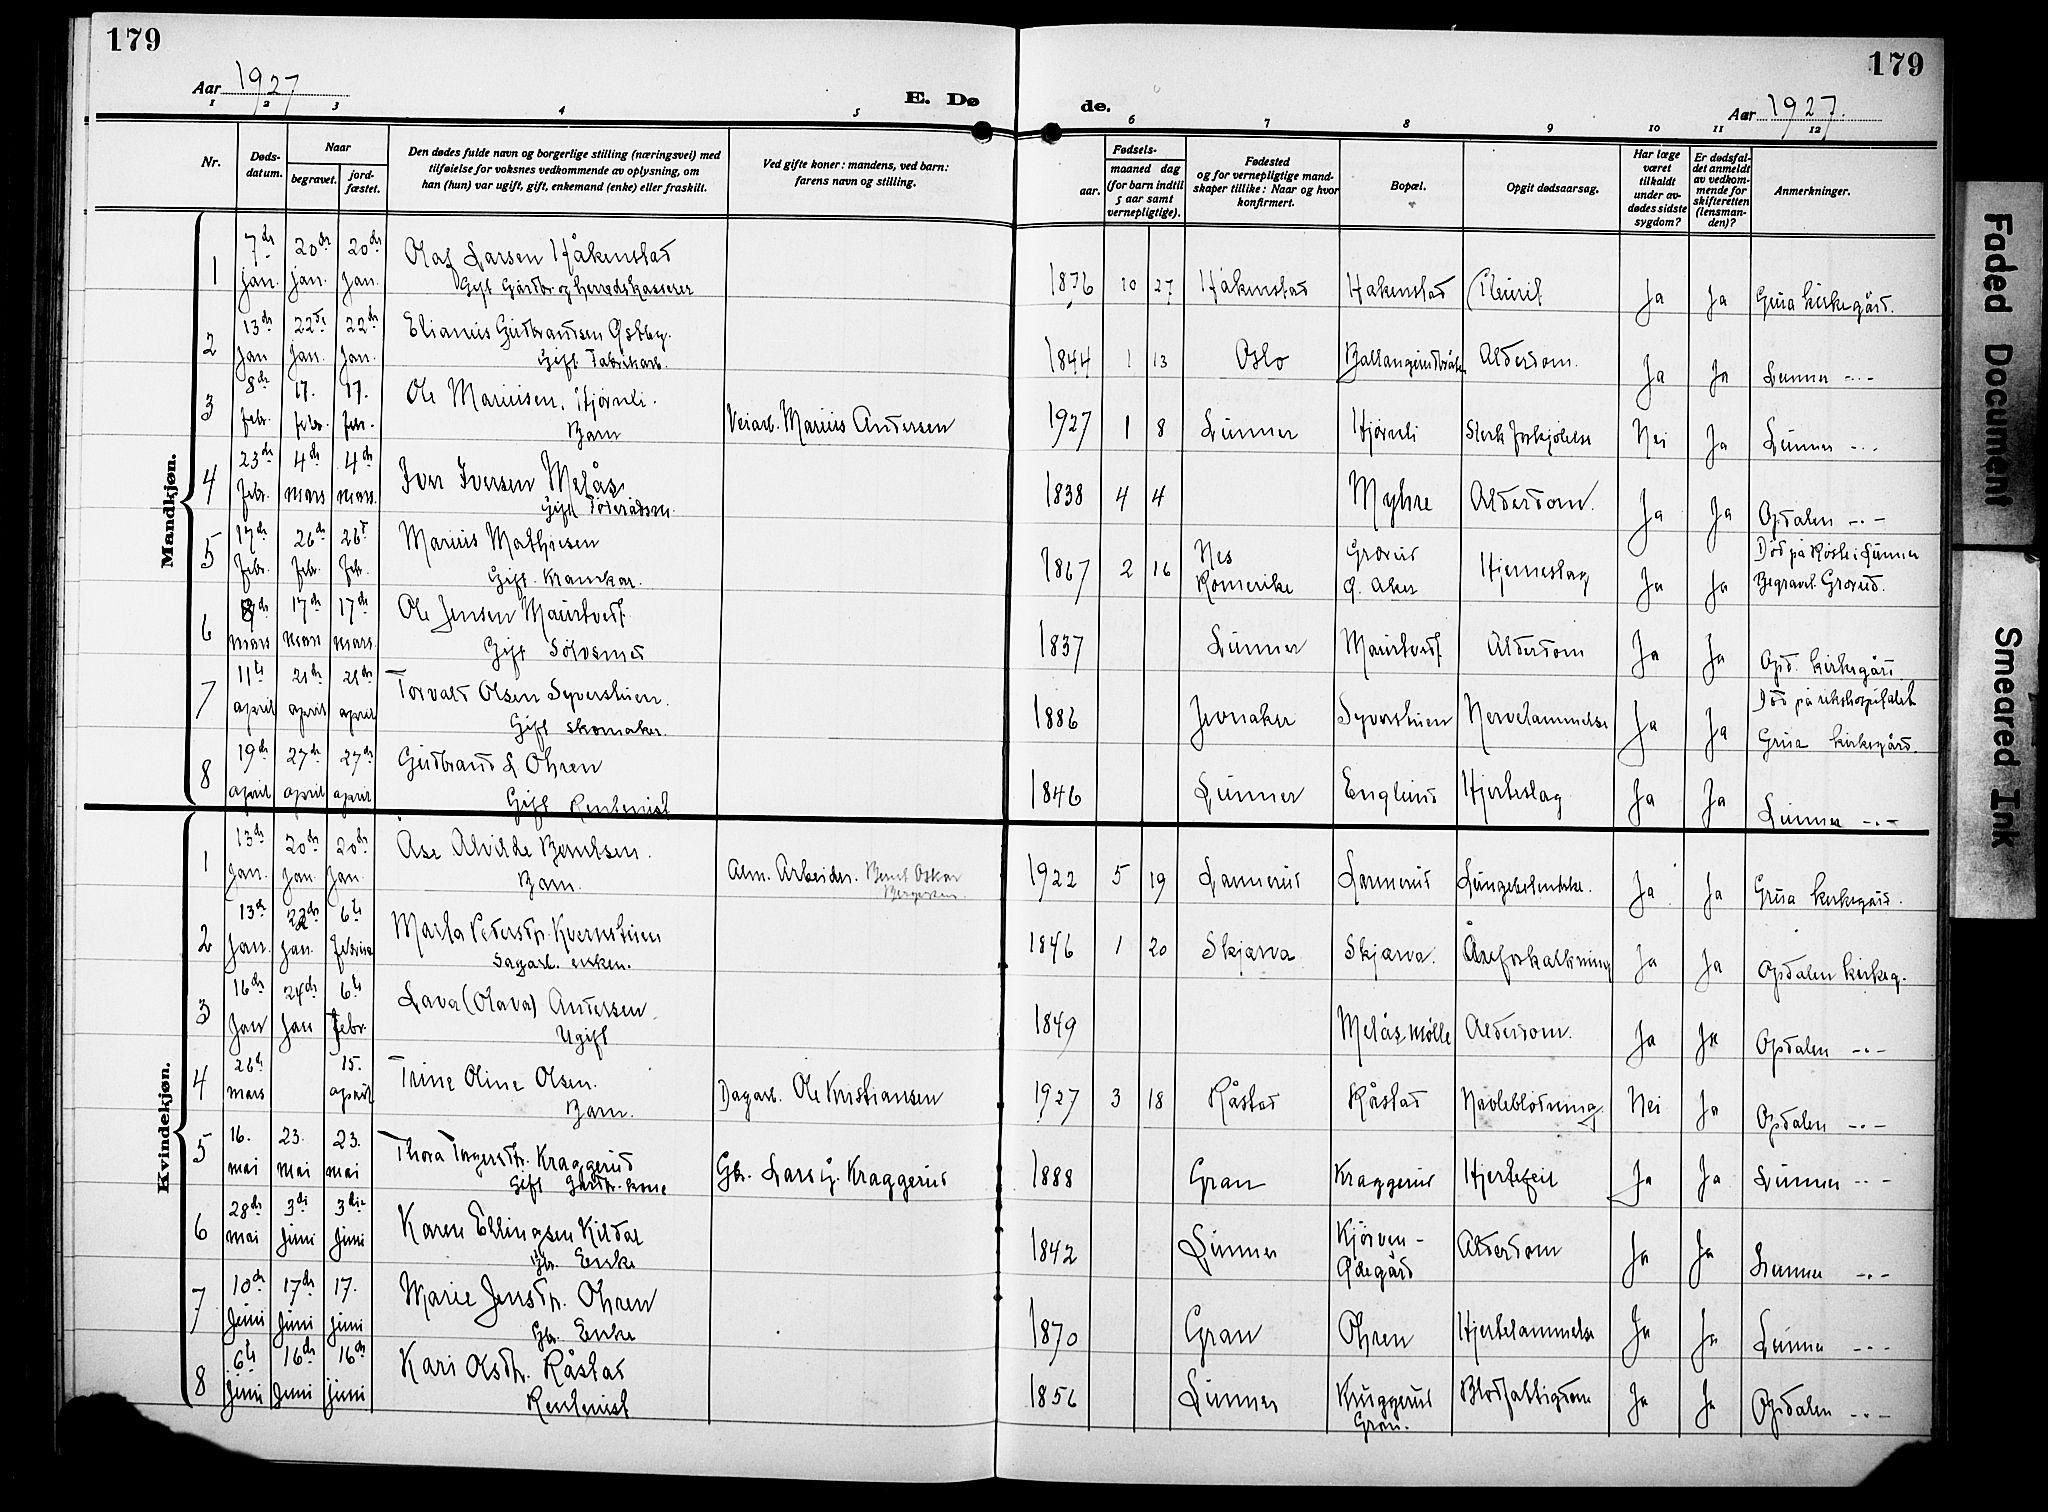 179
179
Aar 1927
E. Dø
de.
Aar 1927.
1 2 3 4 5 6 7 8 9 10 11 12
Nr.
Døds-
datum.
Naar
begravet.
jord-
fæstet.
Den dødes fulde navn og borgerlige stilling (næringsvei) med
tilføielse for voksnes vedkommende av oplysning, om
han (hun) var ugift, gift, enkemand (enke) eller fraskilt.
Ved gifte koner: mandens, ved barn:
farens navn og stilling.
Fødsels-
aar.
maaned dag
(for barn indtil
5 aar samt
vernepligtige).
Fødested
og for vernepligtige mand-
skaper tillike: Naar og hvor
konfirmert.
Bopæl.
Opgit dødsaarsag.
Har læge
været
tilkaldt
under av-
dødes sidste
sygdom?
Er dødsfal-
det anmeldt
av vedkom-
mende for
skifteretten
(lensman-
den)?
Anmerkninger.
Mandkjøn.
1 7de jan. 20de jan. 20de jan. Olaf Larsen Håkenstad
Gift Gårdbr. og herredskasserer
1876 10 27 Håkenstad Håkenstad Pleurit Ja Ja Grua kirkegård.
2 13de jan 22de jan. 22de jan. Elianus Gudbrandsen Østby.
Gift Fabrikarb.
1844 1 13 Oslo Ballangrudbråten Alderdom. Ja Ja Lunner -"-
3 8de febr. 17. febr. 17. febr. Ole Mariusen, Hjørnli.
Barn
Veiarb. Marius Andersen 1927 1 8 Lunner Hjørnli Sterk forkjölelse Nei Ja Lunner -"-
4 23de febr. 4de mars 4de mars. Iver Iversen Melås
Gift Föderådsm.
1838 4 4 Myhre Alderdom. Ja Ja Opdalen -"-
5 17de febr. 26de febr. 26d febr. Marius Mathiesen
Gift. Krankar.
1867 2 16 Nes
Romerike
Grorud
Ø. Aker
Hjerneslag Ja Ja Död på Roste i Lunner
Begravet Grorud.
6 mars 17de mars 17de mars. Ole Jensen Maurtvedt.
Gift Sölvsmed
1837 Lunner Maurtvedt Alderdom Ja Ja Opd. kirkegård
7 11te april 21de april 21de april Torvald Olsen Syverstuen.
Gift skomaker.
1886 Jevnaker Syverstuen Nervelammelse Ja Ja Död på rikshospitalet
Grua kirkegård.
8 19de april 27de april 27de april Gudbrand L Ohren
Gift Rentenist
1846 Lunner Englund Hjerteslag Ja Ja Lunner -"-
Kvindekjøn.
1 13de Jan. 20de Jan. 20de Jan. Åse Alvilde Berntsen.
Barn.
Alm. Arbeider. Bernt Oskar
Bergersen.
1922 5 19 Larmerud Larmerud Lungebetendelse. Ja Ja Grua kirkegård.
2 13de Jan. 22de jan. 6te februar Marta Pedersdtr. Kvernstuen
Sagarb. enken.
1846 1 20 Skjærva Skjærva. Åreforkalkning Ja Ja Opdalen kirkeg.
3 16de Jan 24de Jan 6te Febr. Lava (Olava) Andersen
Ugift
1849 Melås mölle Alderdom. Ja Ja Opdalen -"-
4 26de mars 15. april Trine Oline Olsen.
Barn.
Dagarb. Ole Kristiansen 1927 3 18 Råstad Råstad Navleblödning. Nei Ja Opdalen -"-
5 16. mai 23. mai 23. mai Thora Ingersdtr. Kraggerud
Gift Gårdbr. kone
Gbr. Lars G. Kraggerud 1888 Gran Kraggerud Hjertefeil Ja Ja Lunner -"-
6 28de mai 3die Juni 3die Juni Karen Ellingsen Kildal
Gbr. Enke
1842 Lunner Kjörven-
Ødegård
Alderdom Ja Ja Lunner -"-
7 10de Juni 17de Juni 17. juni Marie Jensdtr. Ohren
Gbr. Enke
1870 Gran Ohren Hjertelammelse Ja Ja Lunner -"-
8 6te Juni 16de Juni 16de juni Kari Olsdtr. Råstad
Rentenist
1856 Lunner Kraggerud
Gran.
Blodfattigdom Ja Ja Opdalen -"-
Faded Document
Smeared Ink